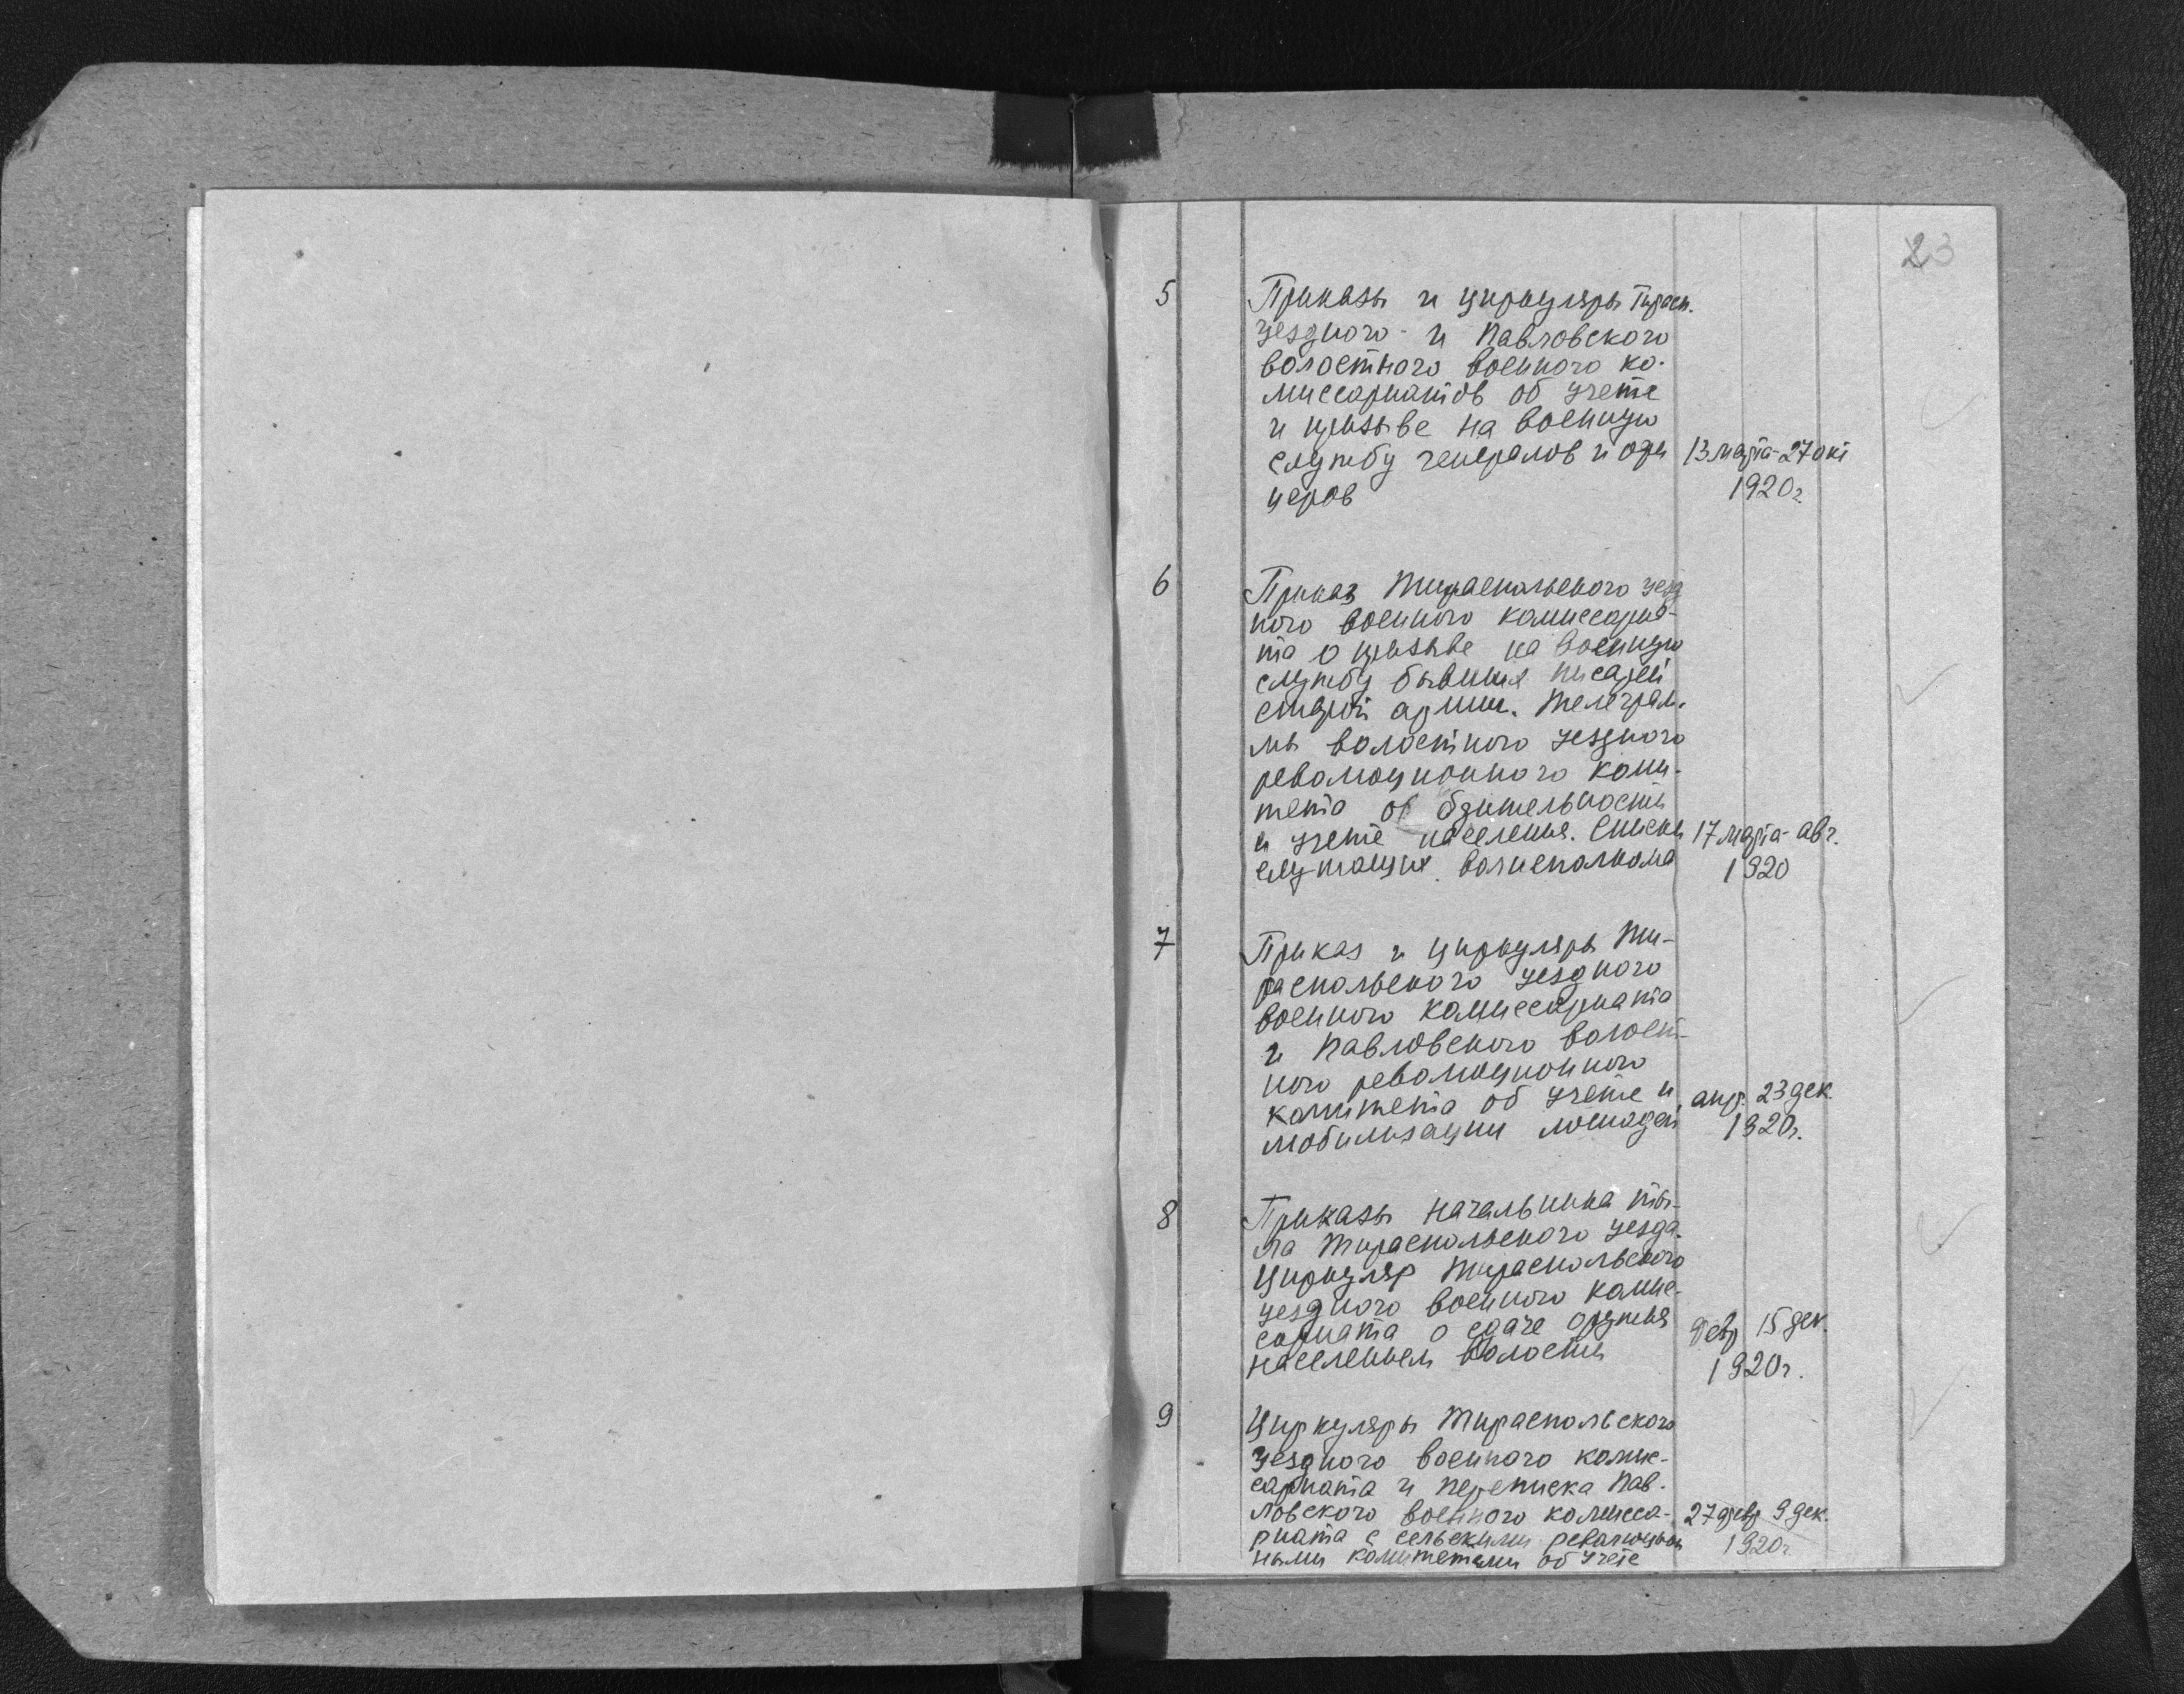 23
5 Приказы и циркуляры Тирасп.
уездного и Павловского
волостного военного ко-
миссариатов об учете
и призыве на военную
службу генералов и офи 13 марта-27 окт
церов 1920г.
6 Приказ Тираспольского уезд
ного военного комиссариа-
та о призыве на военную
службу бывших писарей
старой армии. Телеграм-
мы волостного уездного
революционного коми-
тета о бдительности
и учете населения. Списки 17 марта-авг.
служащих волисполкома 1920
7 Приказ и циркуляры Ти-
распольского уездного
военного комиссариата
и Павловского волост-
ного революционного
комитета об учете и апр. 23 дек.
мобилизации лошадей 1920г.
8 Приказы начальника ты-
ла Тираспольского уезда.
Циркуляр Тираспольского
уездного военного комис-
сариата о сдаче оружия февр 15 дек.
населением волости 1920г.
9 Циркуляры Тираспольского
уездного военного комис-
сариата и переписка Пав-
ловского военного комисса- 27 февр 9 дек.
риата с сельскими революцион 1920г
ными комитетами об учете